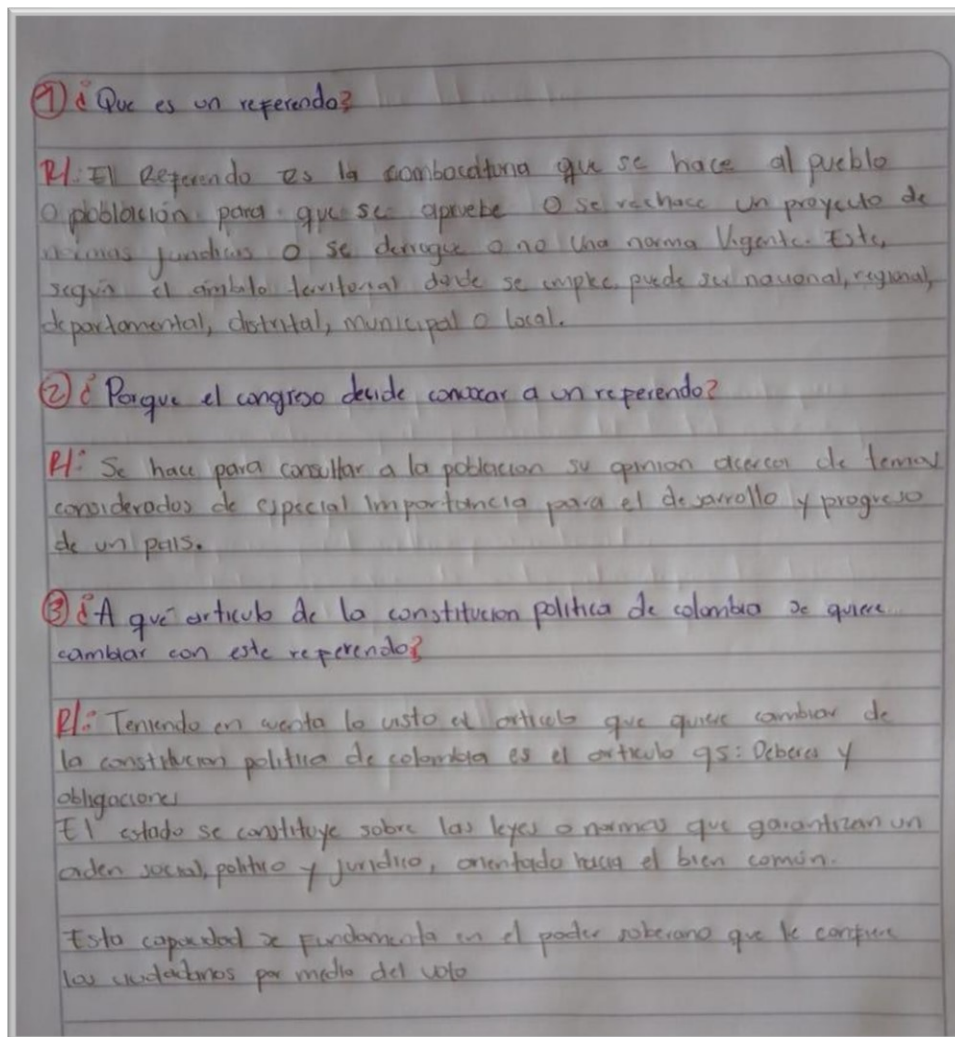 ① ¿Que es un referendo?
R/: El Referendo es la combocatuna que se hace al pueblo
O poblacion para que se apruebe O se rechace un proyecto de
normas juridicas O se derogue o no una norma Vigente. Este,
según el ambito territorial donde se emplee puede ser nacional, regional,
departamental, distrital, municipal o local.
② ¿Porque el congreso decide convocar a un reperendo?
R/: Se hace para consultar a la poblacion su opinion acerca de temas
considerados de especial importancia para el desarrollo y progreso
de un pais.
③ ¿A qué articulo de la constitucion politica de colombia se quiere
cambiar con este reperendo?
R/: Teniendo en cuenta lo visto el articulo que quiere cambiar de
la constitucion politica de colombia es el articulo 95: Deberes y
obligaciones
El estado se constituye sobre las leyes o normas que garantizan un
orden social, politico y juridico, orientado hacia el bien común.
Esta capacidad se fundamenta en el poder soberano que le confiere
los ciudadanos por medio del voto